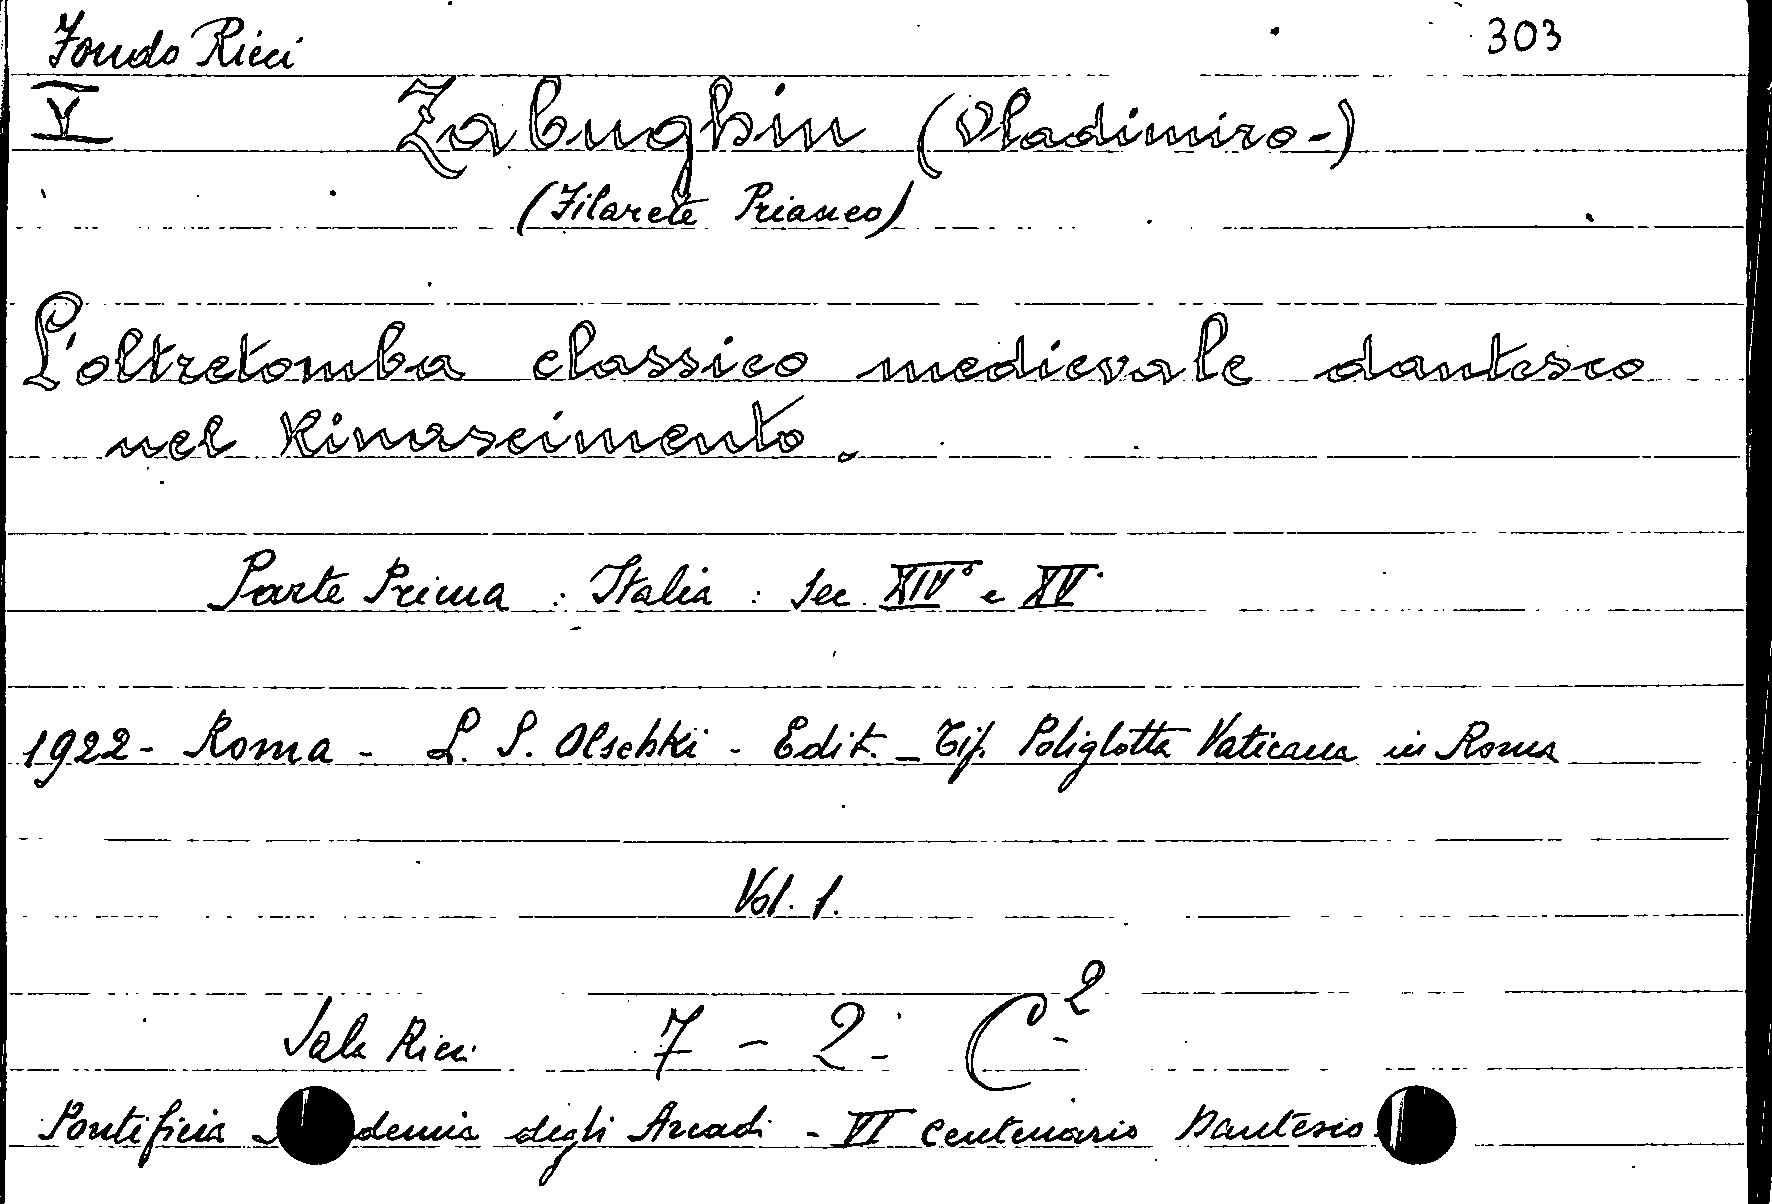 Fondo Ricci 303
V Zabughin (Vladimiro-)
(Filarete Prianeo)
L'oltretomba classico medievale dantesco
nel Rinascimento.
Parte Prima : Italia : Sec. XIV° e XV°
1922 - Roma - L. S. Olschki - Edit. - Tip. Poliglotta Vaticana in Roma
Vol. 1.
Sala Ricci 7 - 2 - C²
Pontificia degli Arcadi - VI Centenario Dantesco